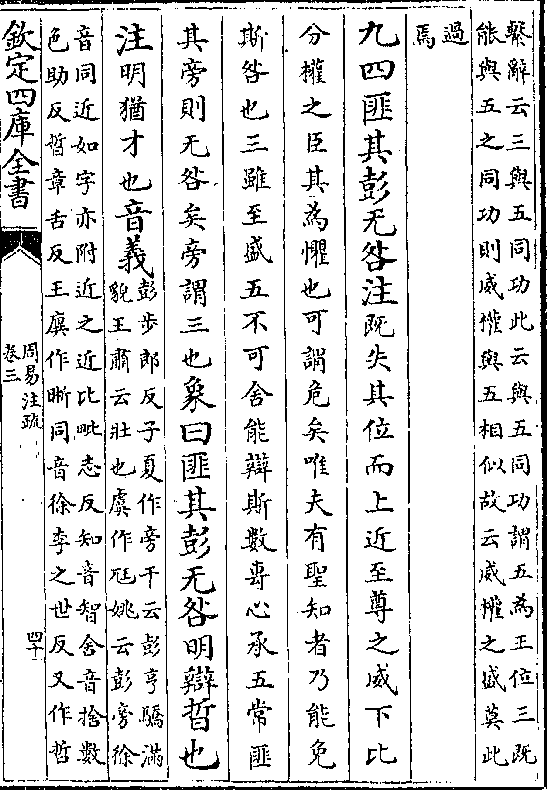 繫辭云三與五同功此云與五同功謂五為王位三既
能與五之同功則威權與五相似故云威權之盛莫此
過
焉
九四匪其彭无咎注既失其位而上近至尊之威下比
分權之臣其為懼也可謂危矣唯夫有聖知者乃能免
斯咎也三雖至盛五不可舍能辯斯數專心承五常匪
其旁則无咎矣旁謂三也象曰匪其彭无咎明辯晢也
注明猶才也音義彭步郎反子夏作旁干云彭亨驕滿
貌王肅云壯也虞作尫姚云彭旁徐
音同近如字亦附近之近比毗志反知音智舍音捨數
色助反晢章舌反王廙作晣同音徐李之世反又作哲
欽定四庫全書
周易注疏
卷三
四十